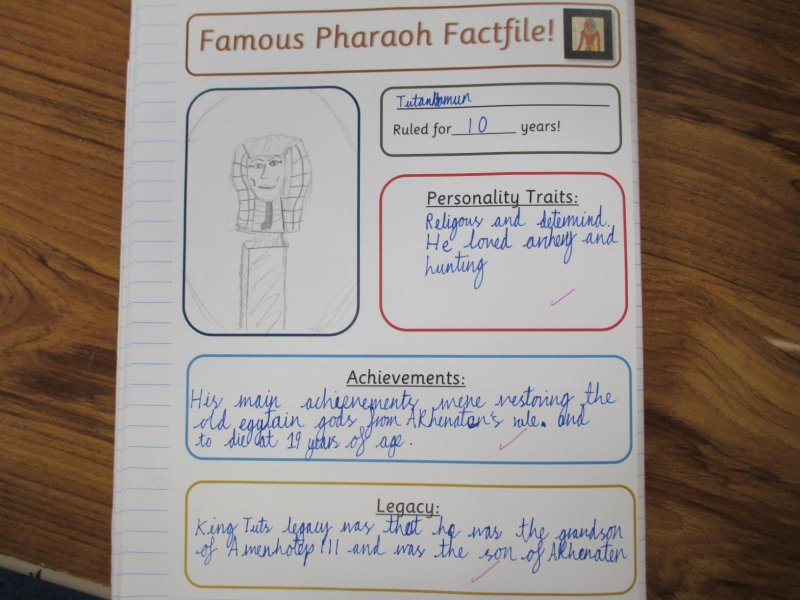 Famous Pharaoh Factfile!
Tutankhamun
Ruled for 10 years!
Personality Traits:
Religous and determind.
He loved archery and
hunting
Achievements:
His main achieenements were restoring the
old egytain gods from AKhenaten's rule. and
to die at 19 years of age.
Legacy:
King Tuts legacy was that he was the grandson
of Amenhotep III and was the son of AKhenaten